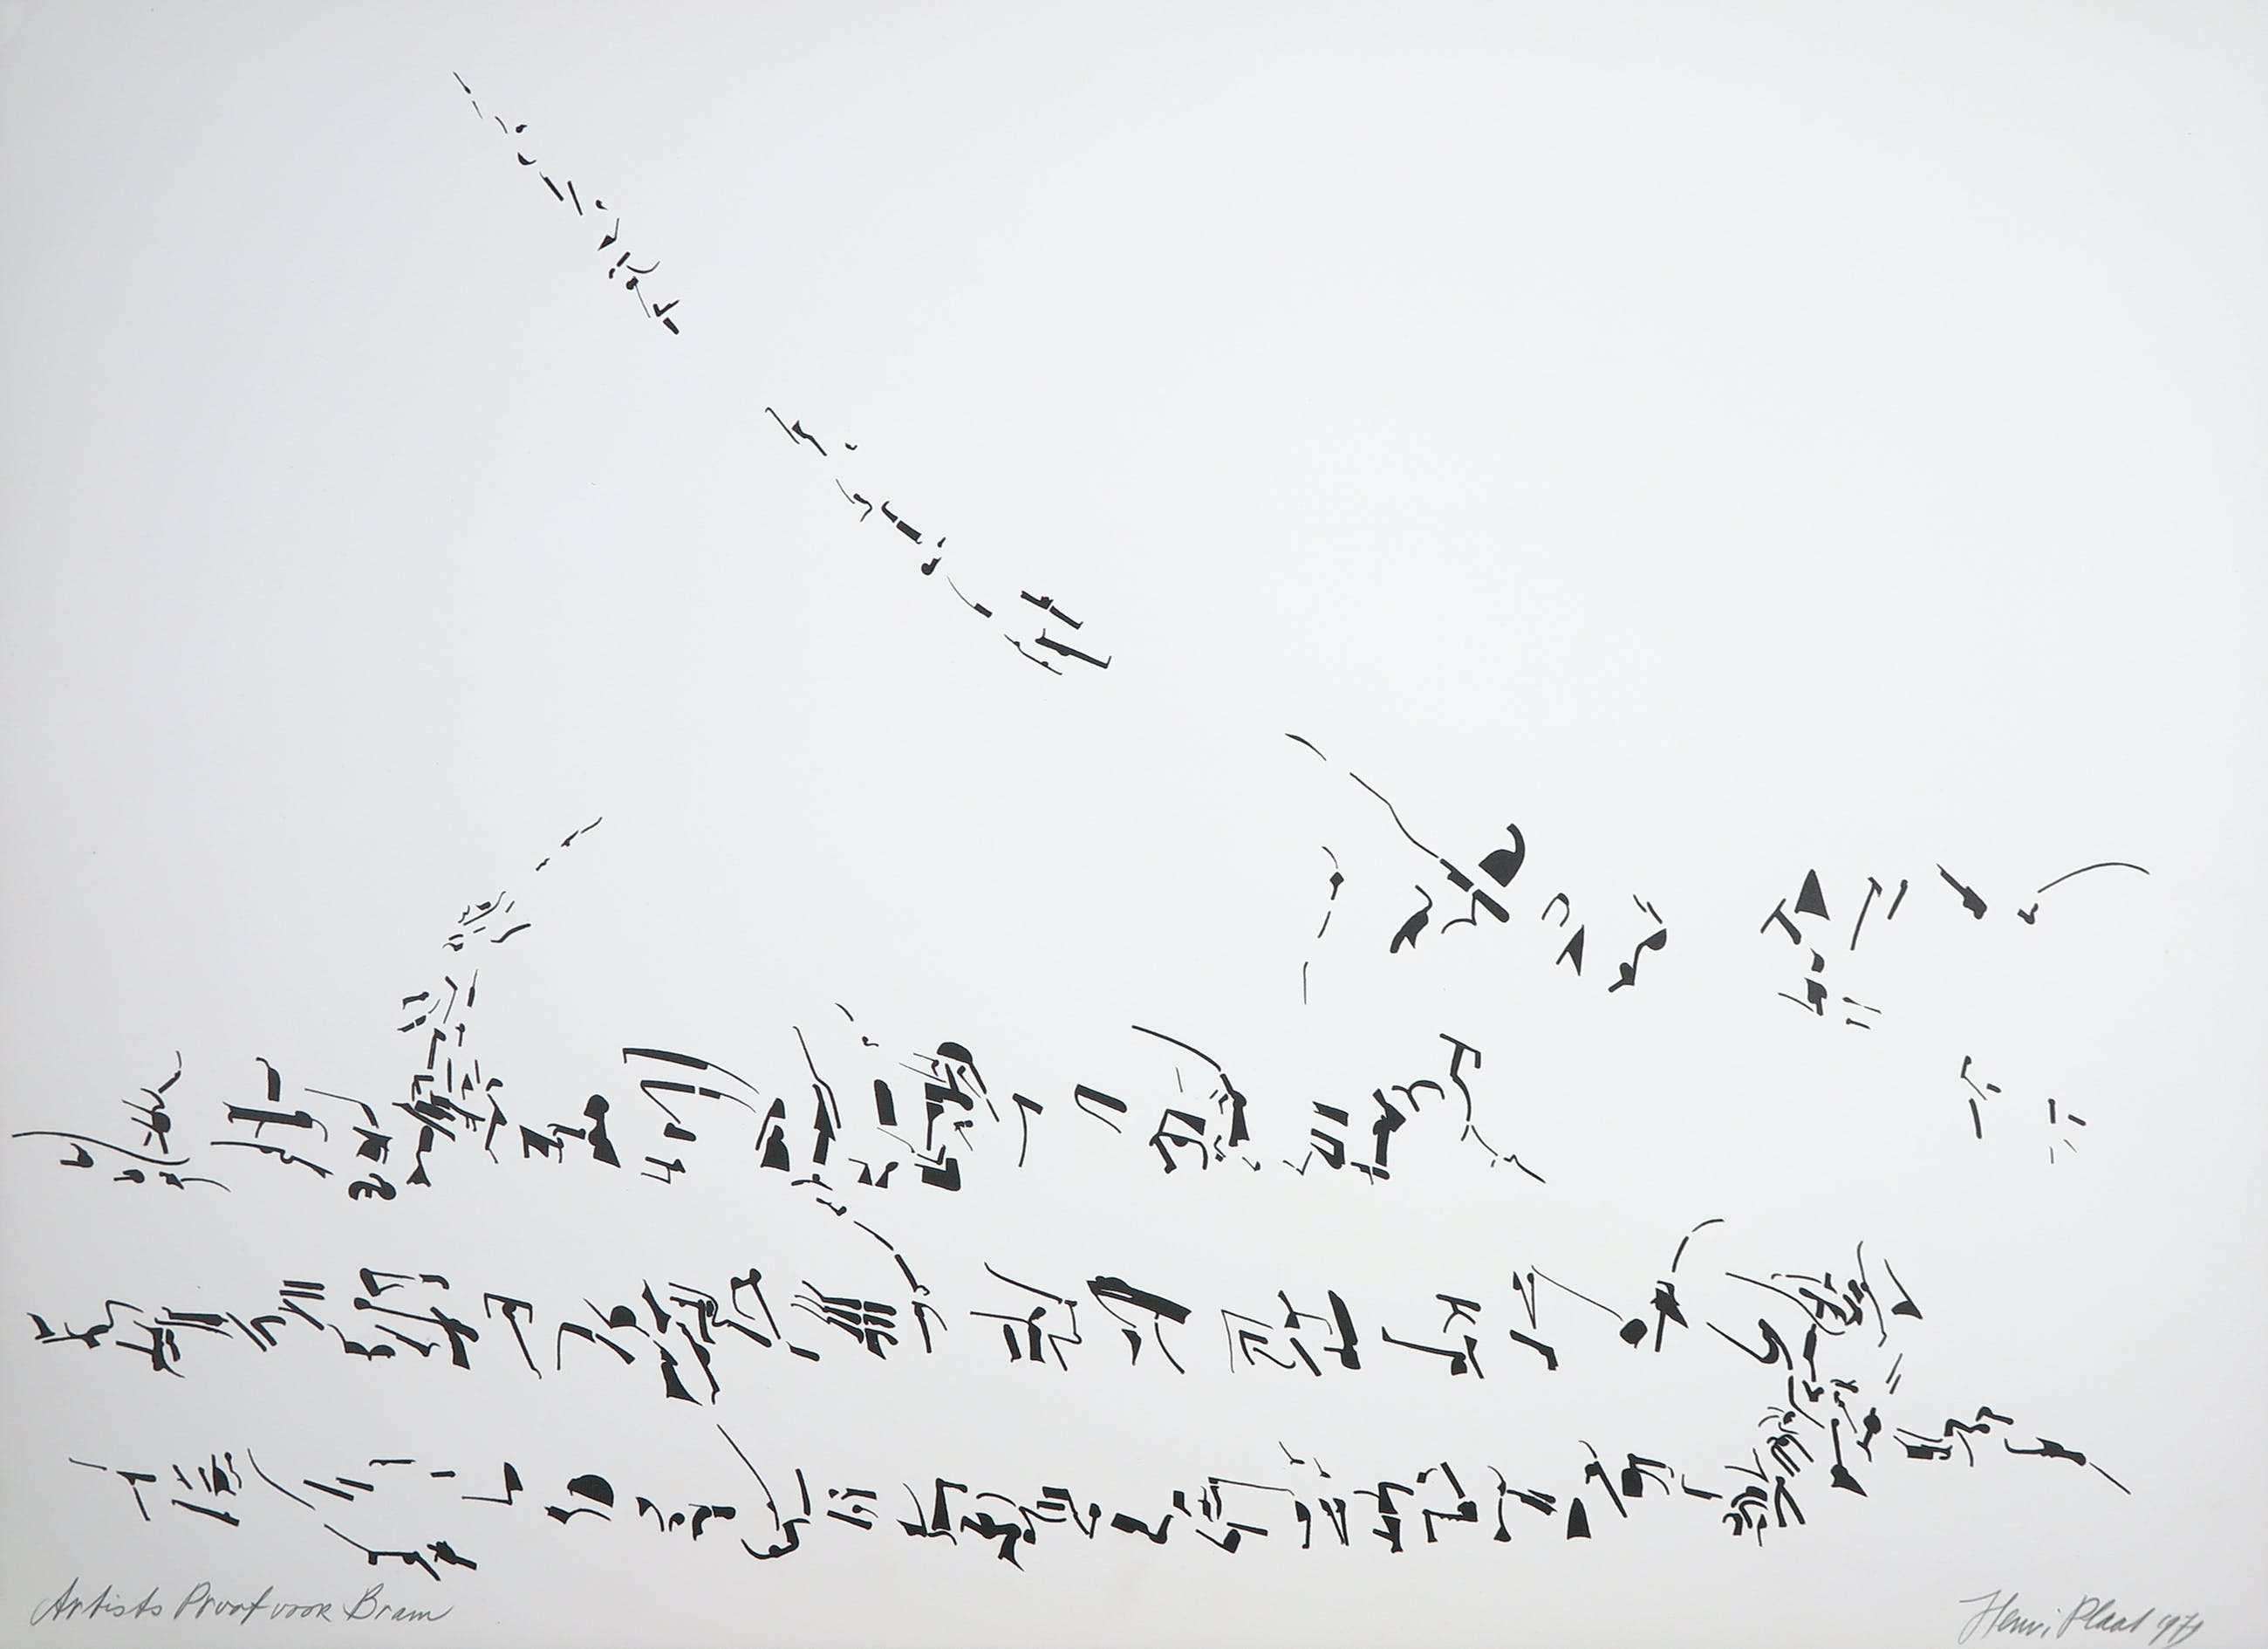 Artists Proof voor Bram
Henri Plaat '971